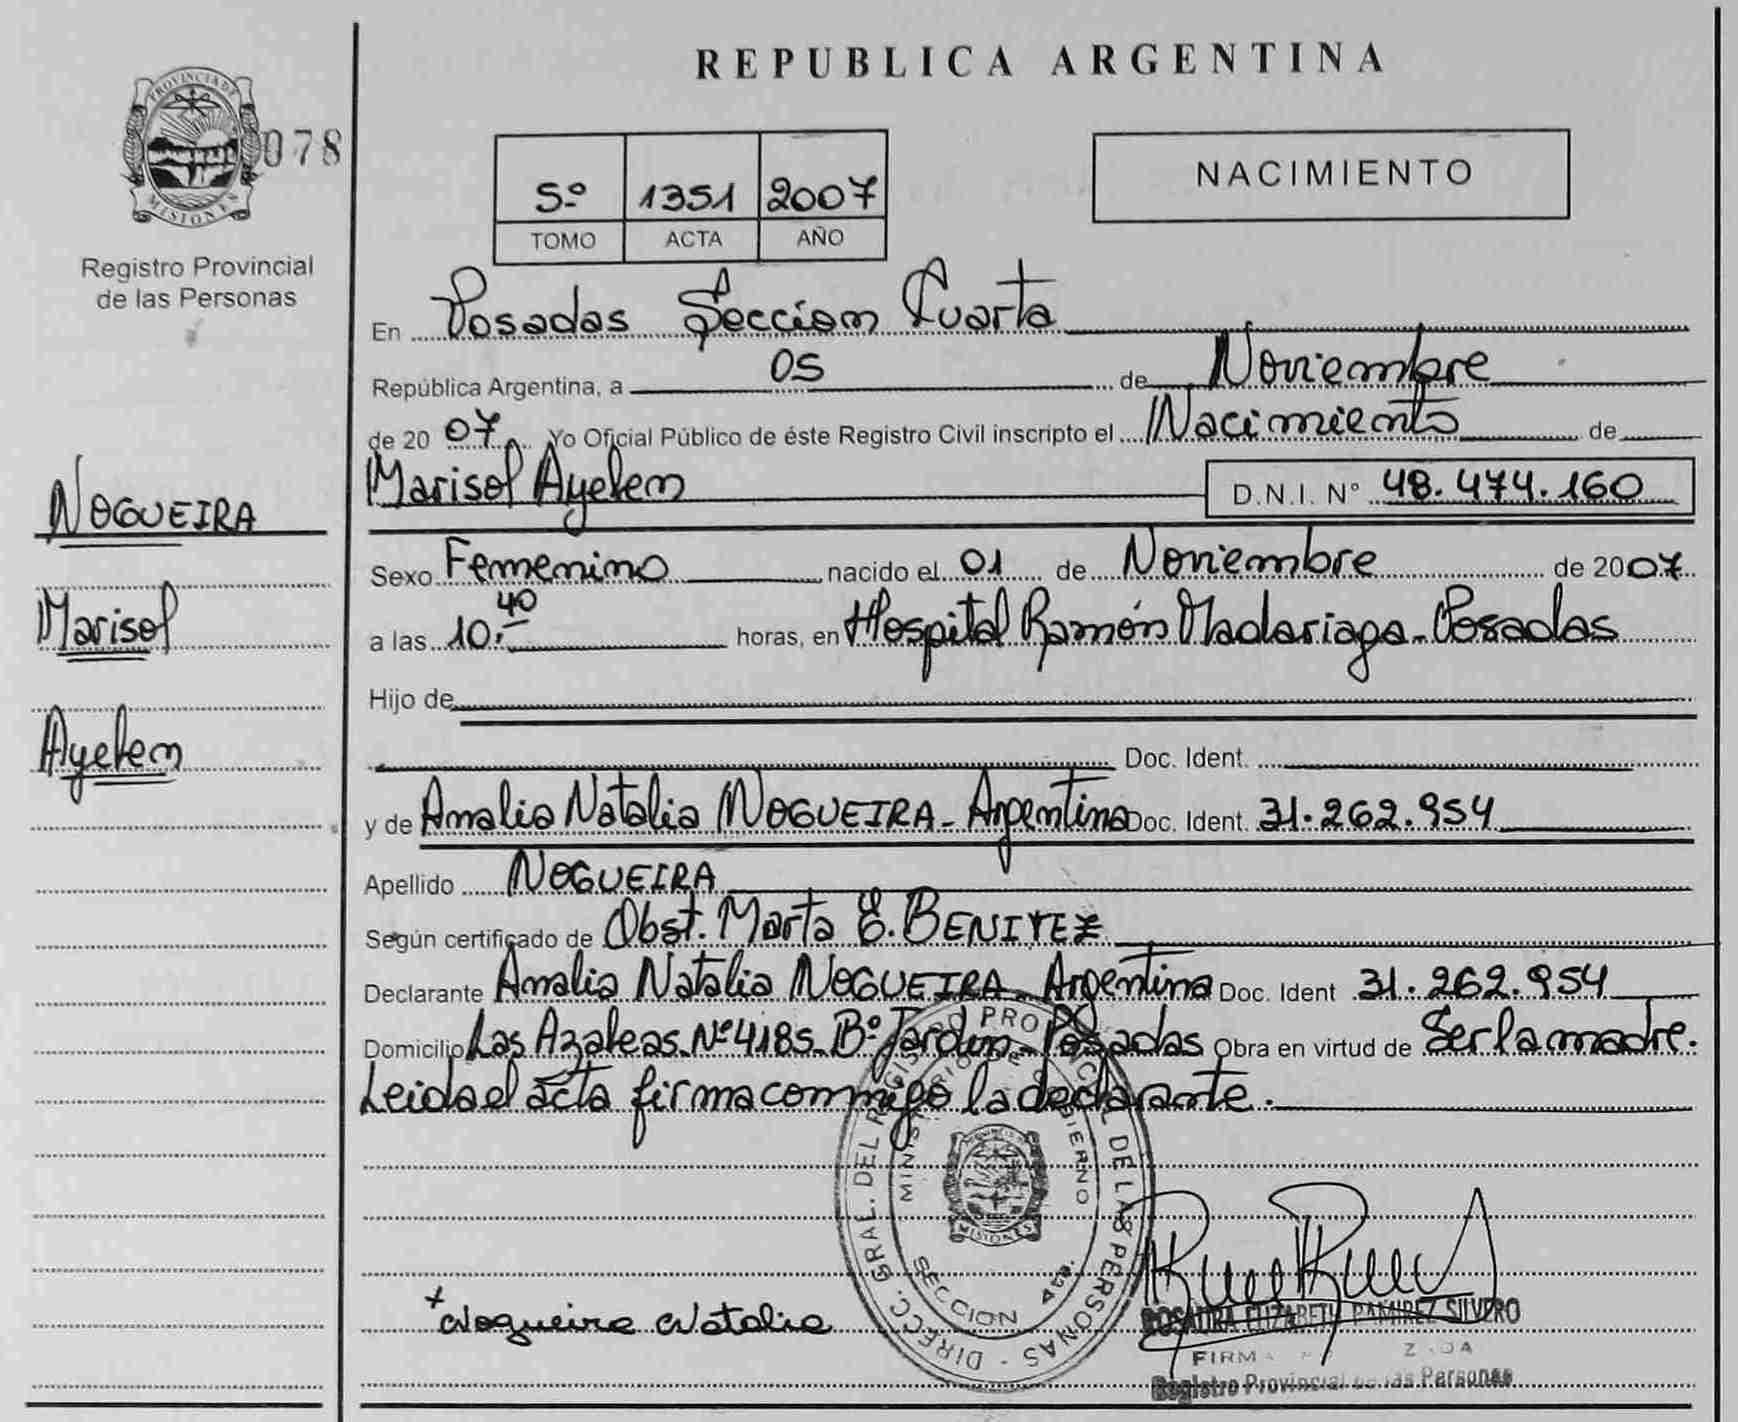 REPUBLICA ARGENTINA
PROVINCIA DE
MISIONES
078
Registro Provincial
de las Personas
5º 1351 2007
TOMO ACTA AÑO
NACIMIENTO
En Posadas Sección Cuarta
República Argentina, a 05 de Noviembre
de 2007 Yo Oficial Público de éste Registro Civil inscripto el Nacimiento de
Marisol Ayelen D.N.I. Nº 48.474.160
NOGUEIRA
Marisol
Ayelen
Sexo Femenino nacido el 01 de Noviembre de 2007
a las 10.40 horas, en Hospital Ramón Madariaga - Posadas
Hijo de
Doc. Ident.
y de Amalia Natalia NOGUEIRA - Argentina Doc. Ident. 31.262.954
Apellido NOGUEIRA
Según certificado de Obst. Marta E. BENITEZ
Declarante Amalia Natalia NOGUEIRA - Argentina Doc. Ident 31.262.954
Domicilio Las Azaleas Nº 4185 - Bº Jardin - Posadas Obra en virtud de Ser la madre.
Leida el acta firma conmigo la declarante.
DIRECC. GRAL. DEL REGISTRO PROVINCIAL DE LAS PERSONAS
MINISTERIO DE GOBIERNO
MISIONES
SECCION 4ta.
Nogueira Natalia
ROSAURA ELIZABETH RAMIREZ SILVERO
FIRMA
Registro Provincial de las Personas